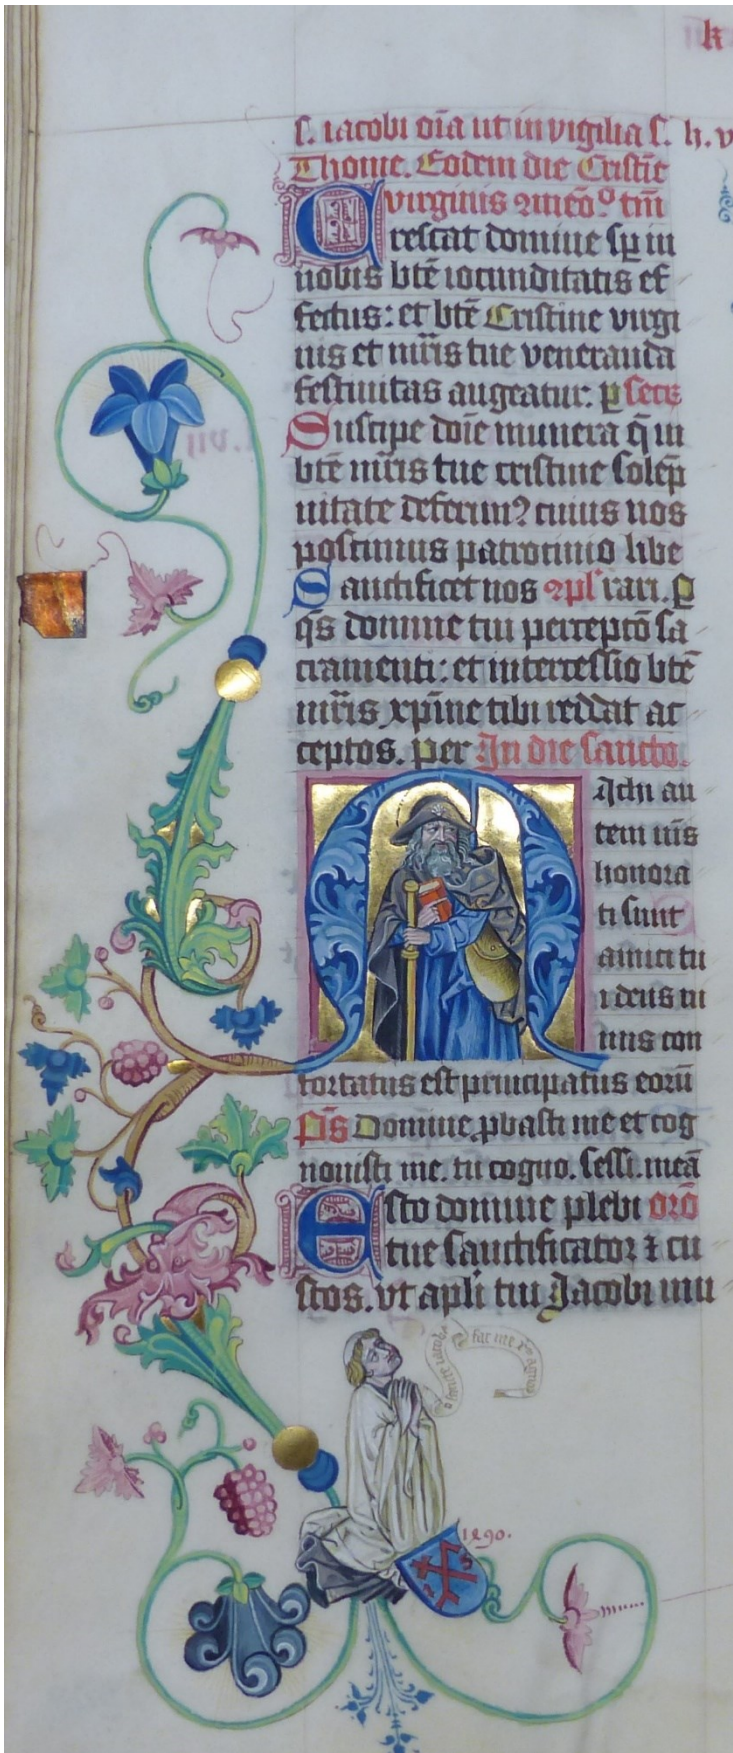 k
S. iacobi oīa ut in vigilia S. h. v
Thome. Eodem die Cristīe
virginis
Crescat domine sp̄ in
nobis btē iocunditatis ef
fectus: et btē Cristine virgi
nis et mr̄is tue veneranda
festivitas augeatur: p̱ secr̄
Suscipe doīe munera q̄ in
btē mr̄is tue cristine solēp
nitate deferim⁹ cuius nos
postimus patrocinio libe
Sanctificet nos rari. p̱
q̄s domine tui perceptō sa
cramenti: et intercessio btē
mr̄is xp̄ine tibi reddat ac
ceptos. per In die sancto.
Michi au
tem nīs
honora
ti sunt
amici tu
i deus ni
mis con
fortatus est principatus eorū
p̄s Domine ꝓbasti me et cog
novisti me. tu cogno. sessi. meā
Esto domine plebi orō
tue sanctificator ⁊ cu
stos. vt apl̄i tui Jacobi mu
fac me
1490.